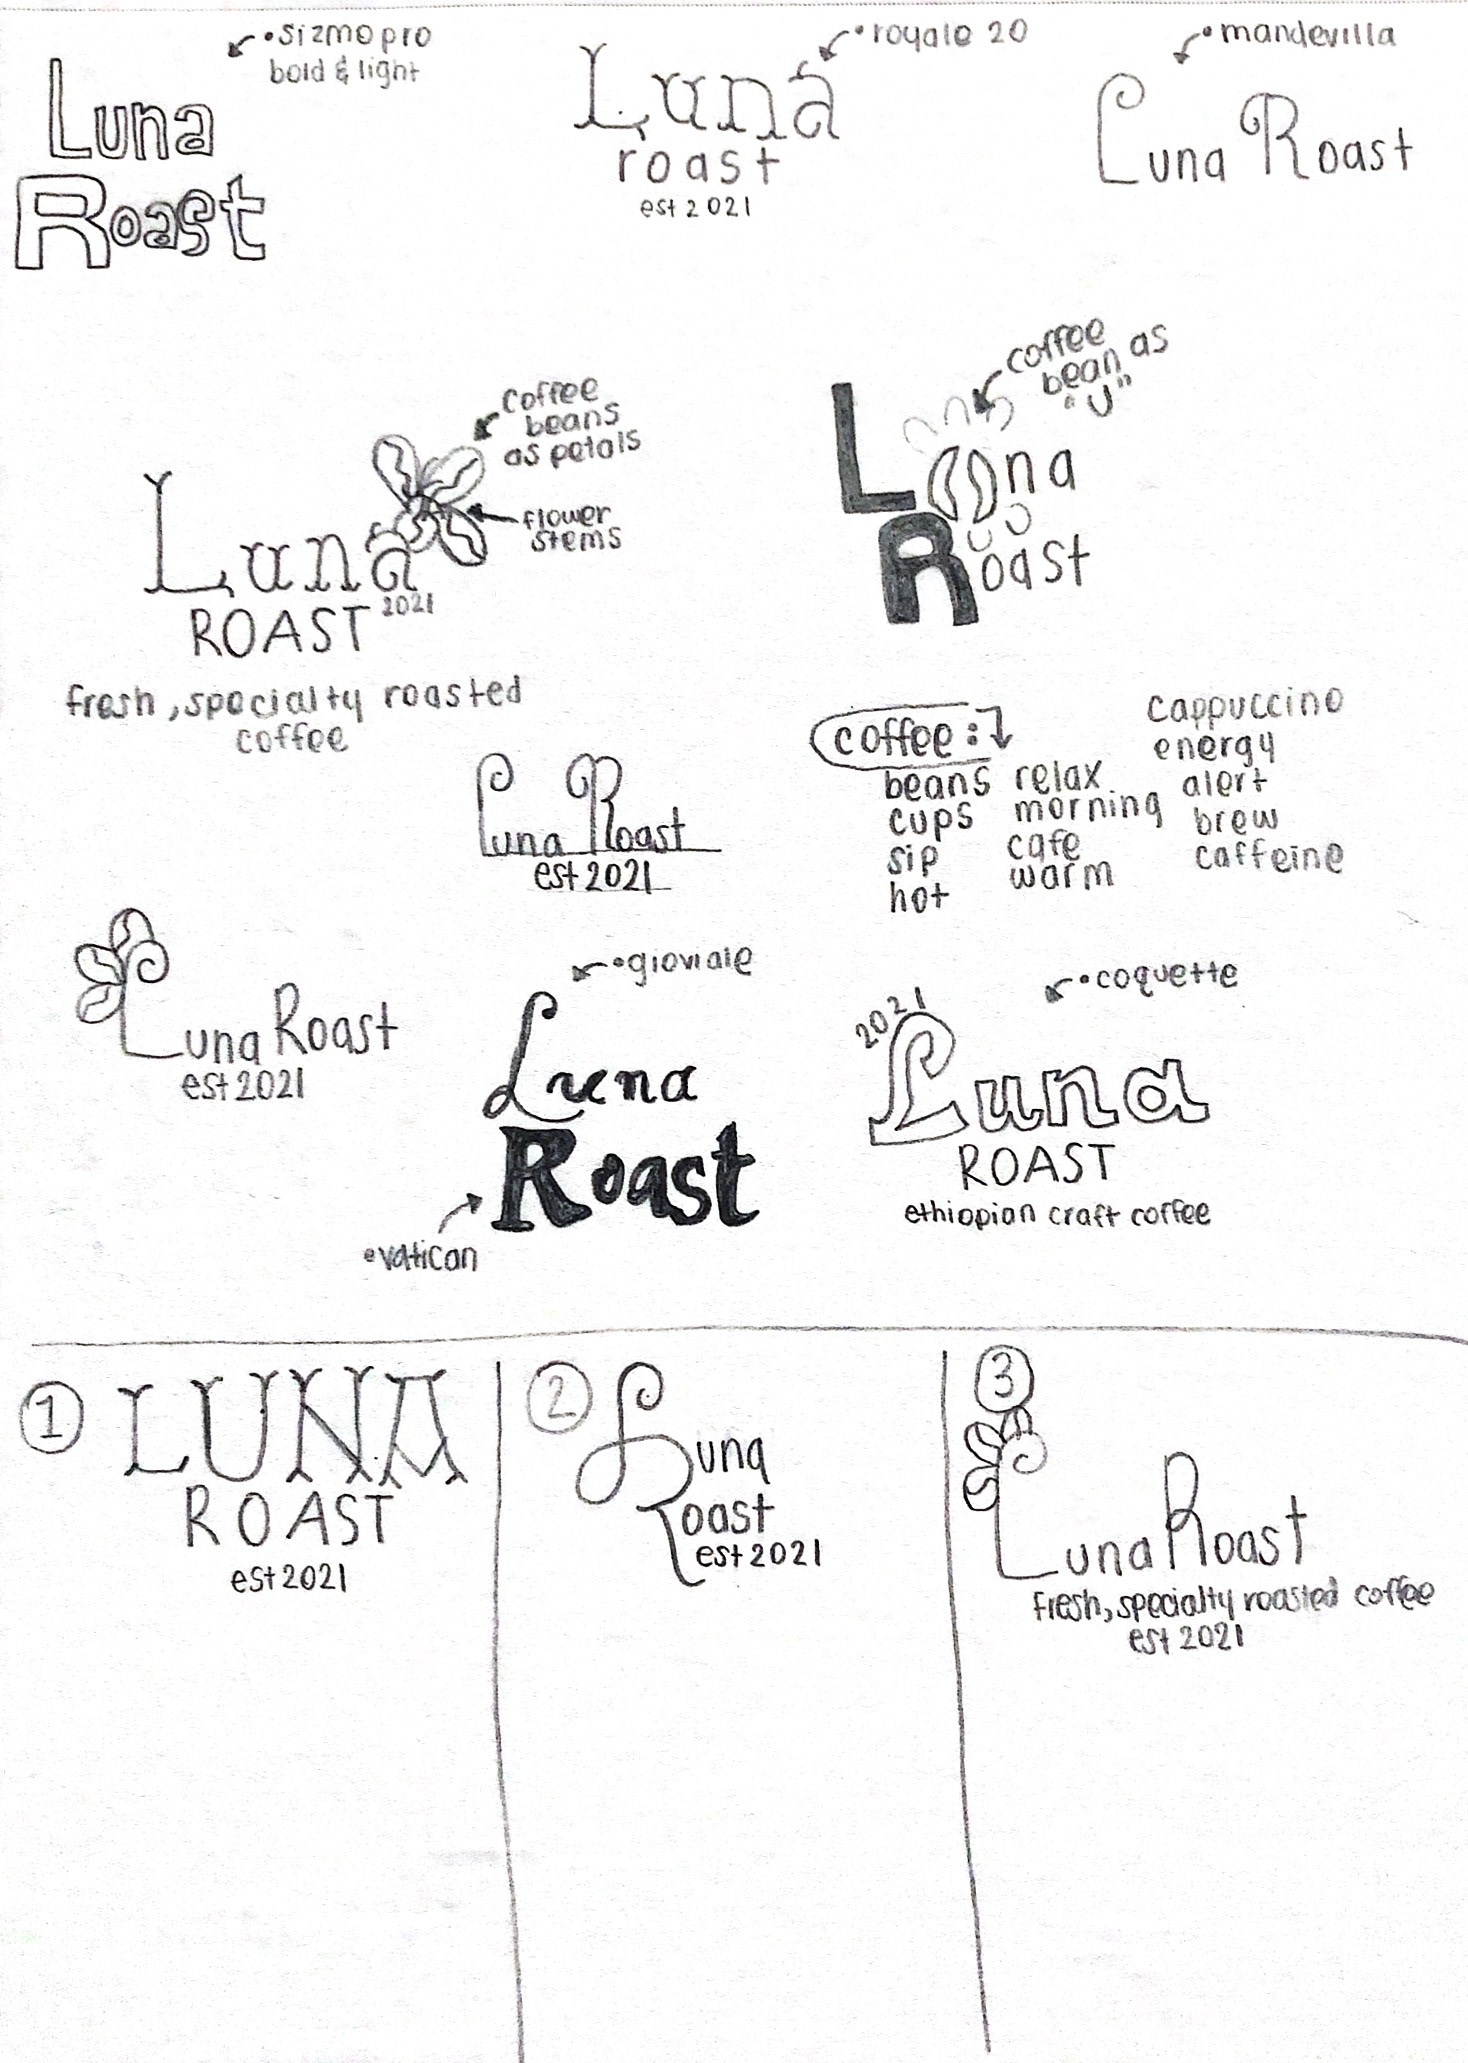 •sizmopro
bold & light
Luna
Roast
•royale 20
Luna
roast
est 2021
•mandevilla
Luna Roast
coffee
beans
as petals
flower
stems
Luna
ROAST 2021
fresh, specialty roasted
coffee
coffee
bean as
"U"
L na
Roast
Luna Roast
est 2021
coffee:
beans
cups
sip
hot
relax
morning
cafe
warm
cappuccino
energy
alert
brew
caffeine
Luna Roast
est 2021
•gioviale
Luna
Roast
•vatican
•coquette
2021
Luna
ROAST
ethiopian craft coffee
1
LUNA
ROAST
est 2021
2
Luna
Roast
est 2021
3
Luna Roast
fresh, specialty roasted coffee
est 2021